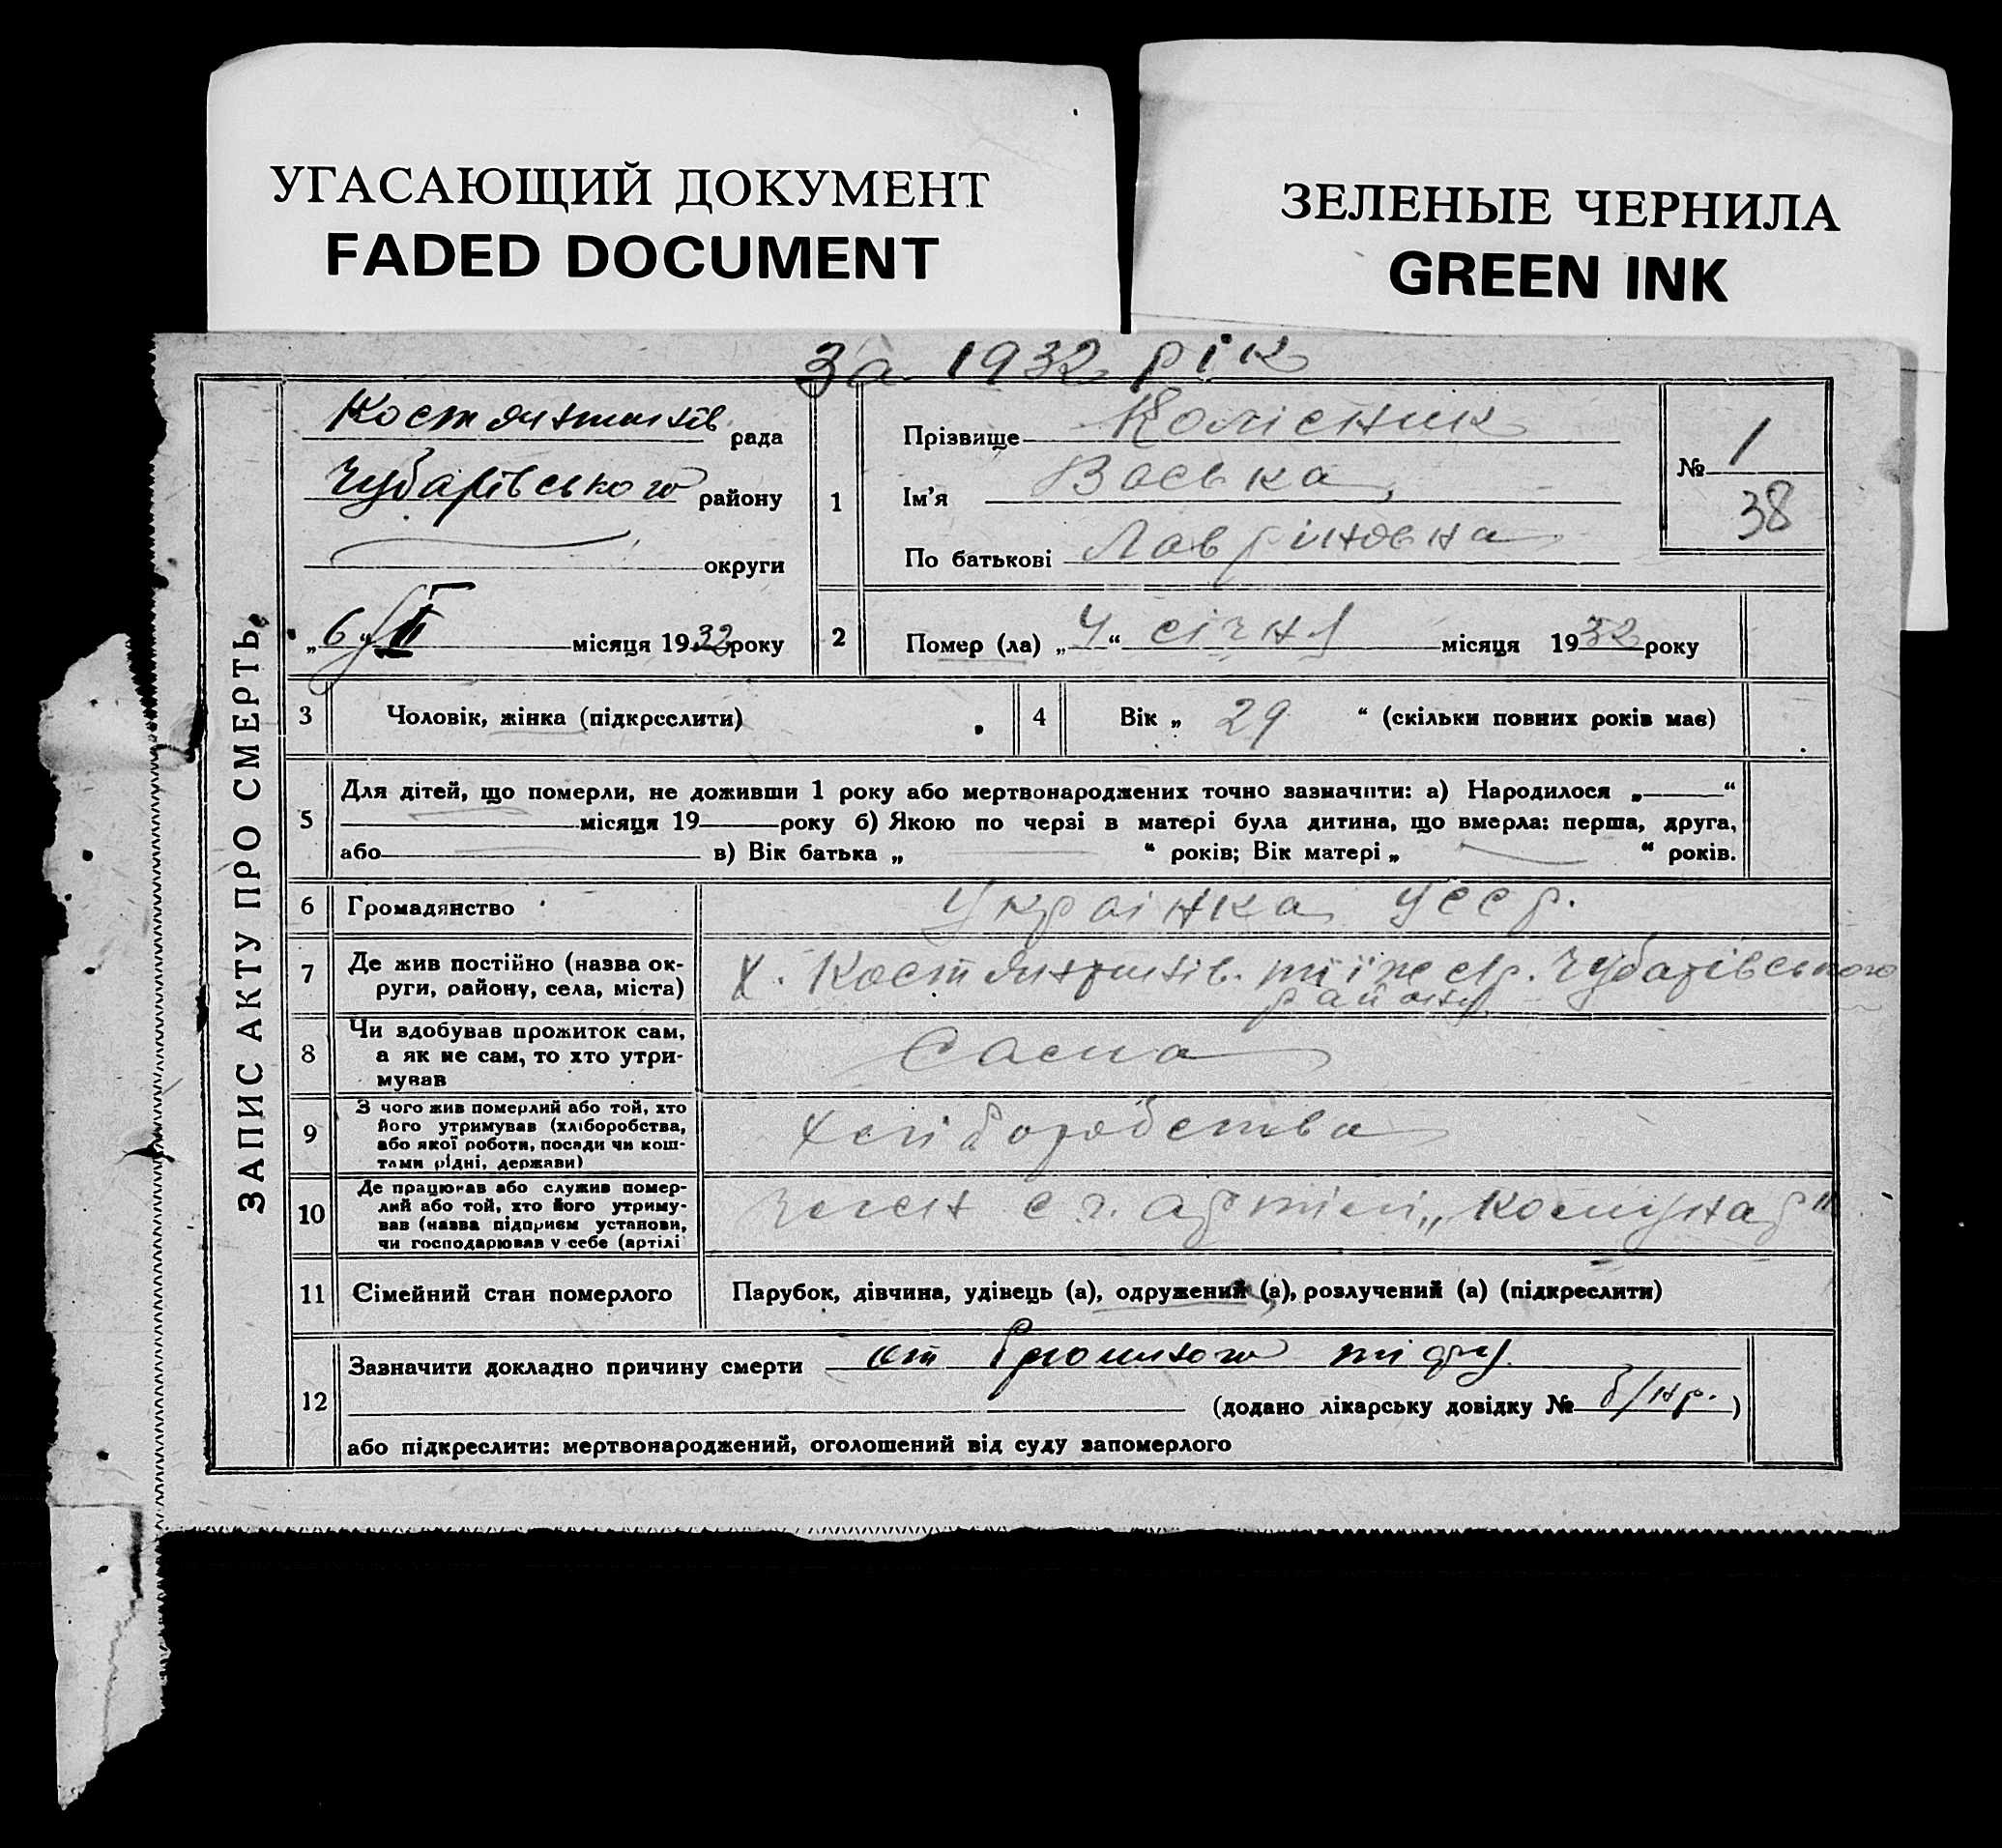 УГАСАЮЩИЙ ДОКУМЕНТ
FADED DOCUMENT
ЗЕЛЕНЫЕ ЧЕРНИЛА
GREEN INK
За 1932 рік
ЗАПИС АКТУ ПРО СМЕРТЬ
Костянтинів. рада
Чубарівського району
округи
„6 II місяця 1932 року
1
Прізвище Колісник
Ім’я Васька
По батькові Лавріновна
№ 1
38
2 Помер (ла) „4“ січня місяця 1932 року
3 Чоловік, жінка (підкреслити)
4 Вік „ 29 “ (скільки повних років має)
5 Для дітей, що померли, не доживши 1 року або мертвонароджених точно зазначити: а) Народилося „ “
місяця 19 року б) Якою по черзі в матері була дитина, що вмерла: перша, друга,
або в) Вік батька „ “ років; Вік матері „ “ років.
6 Громадянство Українка УССР.
7 Де жив постійно (назва ок-
руги, району, села, міста)
Х. Костянтинів. тіїж с/р. Чубарівського
району
8 Чи здобував прожиток сам,
а як не сам, то хто утри-
мував
Сама
9 З чого жив померлий або той, хто
його утримував (хліборобства,
або якої роботи, посади чи кош-
тами рідні, держави)
Хліборобства
10 Де працював або служив помер-
лий або той, хто його утриму-
вав (назва підприєм установи,
чи господарював у себе (артілі
член с.г. артілі „Комунар"
11 Сімейний стан померлого Парубок, дівчина, удівець (а), одружений (а), розлучений (а) (підкреслити)
12 Зазначити докладно причину смерти от брюшного тіфу
(додано лікарську довідку № б/нр.)
або підкреслити: мертвонароджений, оголошений від суду запомерлого